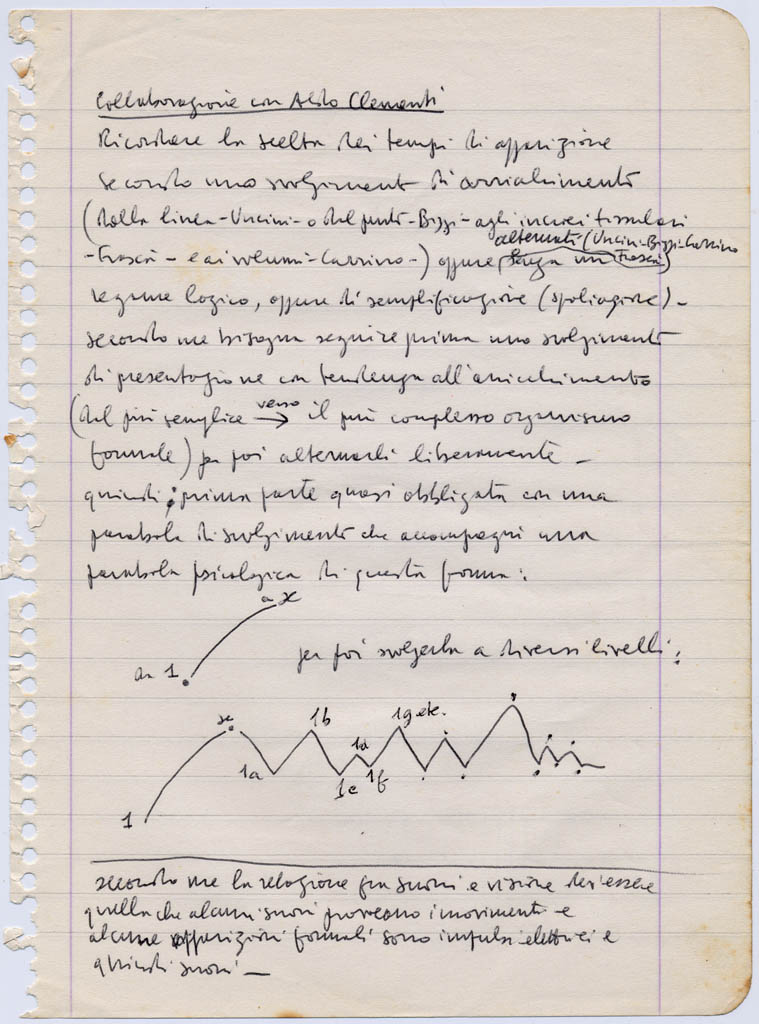 Collaborazione con Aldo Clementi
Ricordare la scelta dei tempi di apparizione
secondo uno svolgimento di arricchimento
(dalla linea - Uncini - o dal punto - Bizzi - agli incroci tissulari
alternati (Uncini-Bizzi-Carrino
- Frascà - e ai volumi - Carrino -) oppure senza un Frascà)
regime logico, oppure di semplificazione (spoliazione) -
secondo me bisogna seguire prima uno svolgimento
di presentazione con tendenza all'arricchimento
verso
(dal più semplice → il più complesso organismo
formale) per poi alternarli liberamente -
quindi: prima parte quasi obbligata con una
parabola di svolgimento che accompagni una
parabola psicologica di questa forma:
a x
da 1
per poi svolgerla a diversi livelli:
x 1b 1d 1g etc.
1a 1c 1f
1
secondo me la relazione fra suoni e visione dev'essere
quella che alcuni suoni provocano i movimenti e
alcune apparizioni formali sono impulsi elettrici e
quindi suoni -